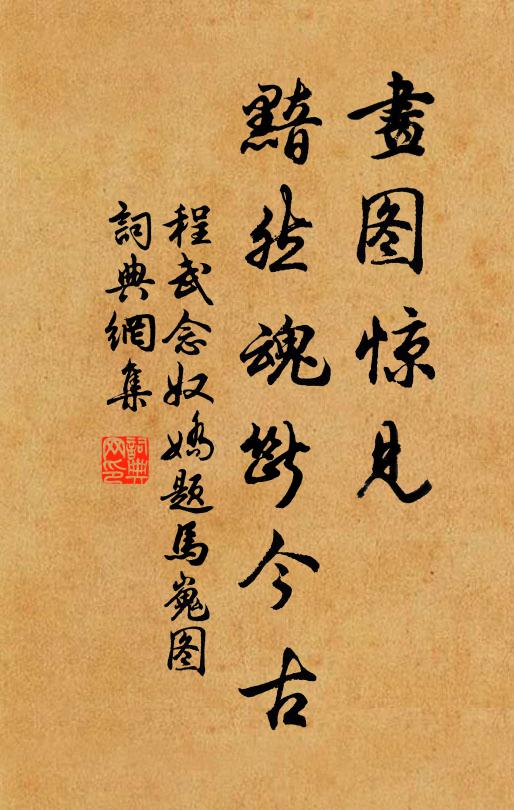 畫图惊见
黯然魂斷今古
程武念奴嬌题馬嵬图
詞典網集
詞典網印